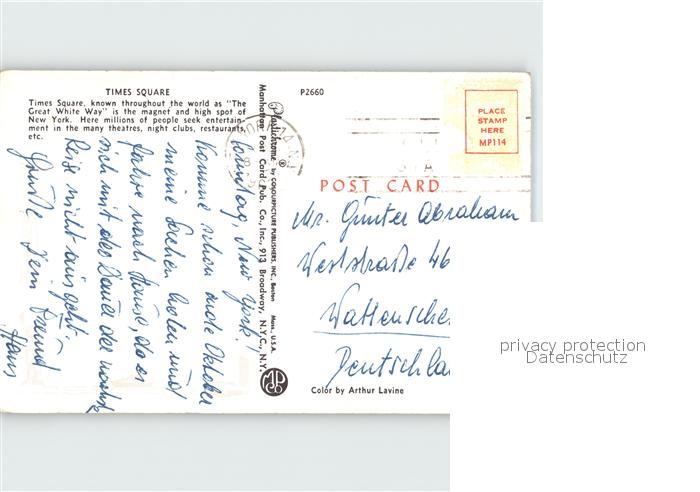 TIMES SQUARE
Times Square, known throughout the world as "The
Great White Way" is the magnet and high spot of
New York. Here millions of people seek entertain-
ment in the many theatres, night clubs, restaurants,
etc.
Sonntag, New York!
Komme schon Ende Oktober
meine Sachen holen und
fahre nach Hause, da es
sich mit der Dauer der
Reise nicht ausgeht.
Grüße Dein Freund
Hans
Plastichrome ® by COLOURPICTURE PUBLISHERS, INC., Boston Mass. U.S.A.
Manhattan Post Card Pub. Co., Inc., 913 Broadway, N.Y.C., N.Y.
P2660
PLACE
STAMP
HERE
MP114
POST CARD
Mr. Günter Abraham
Weststraße 46
Wattensche
Deutschla
Color by Arthur Lavine
privacy protection
Datenschutz